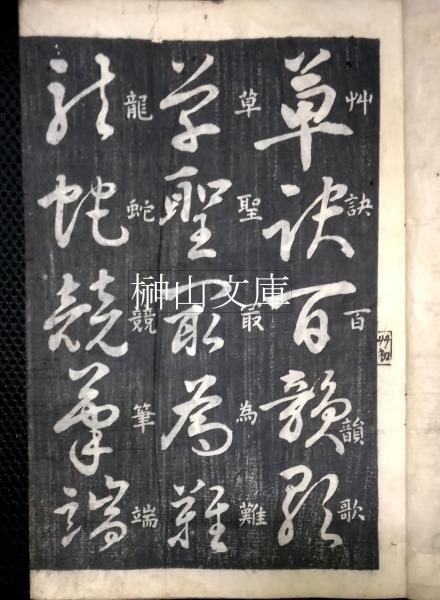 草訣百韻歌
艸訣百韻歌
草聖最為難
草聖最為難
龍蛇競筆端
龍蛇競筆端
榊山文庫
艸初